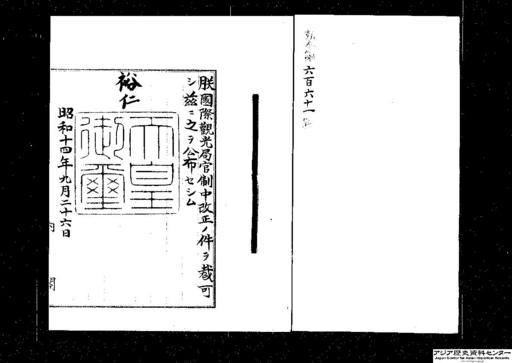 勅令第六百六十一号
朕國際觀光局官制中改正ノ件ヲ裁可
シ茲ニ之ヲ公布セシム
裕仁
天皇御璽
昭和十四年九月二十六日
内閣
アジア歴史資料センター
Japan Center for Asian Historical Records